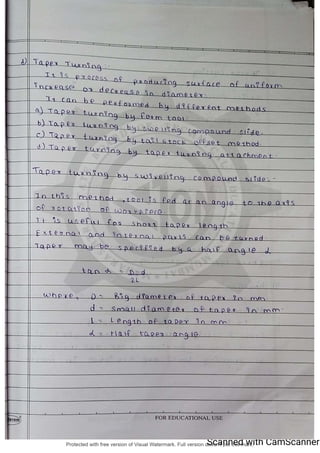 d) Taper Turning :-
It is process of producing surface of uniform
increase or decrease in diameter.
It can be performed by different methods
a) Taper turning by form tool
b) Taper turning by swivelling compound slide.
c) Taper turning by tail stock offset method
d) Taper turning by taper turning attachment
Taper turning by swivelling compound slide :-
In this method , tool is fed at an angle to the axis
of rotation of workpiece.
It is useful for short taper length
External and internal parts can be turned
Taper may be specified by a half angle α
tan α = D-d
2L
where, D = Big diameter of taper in mm
d = small diameter of taper in mm
L = Length of taper in mm
α = Half taper angle.
FOR EDUCATIONAL USE
Protected with free version of Visual Watermark. Full version
Scanned with CamScanner